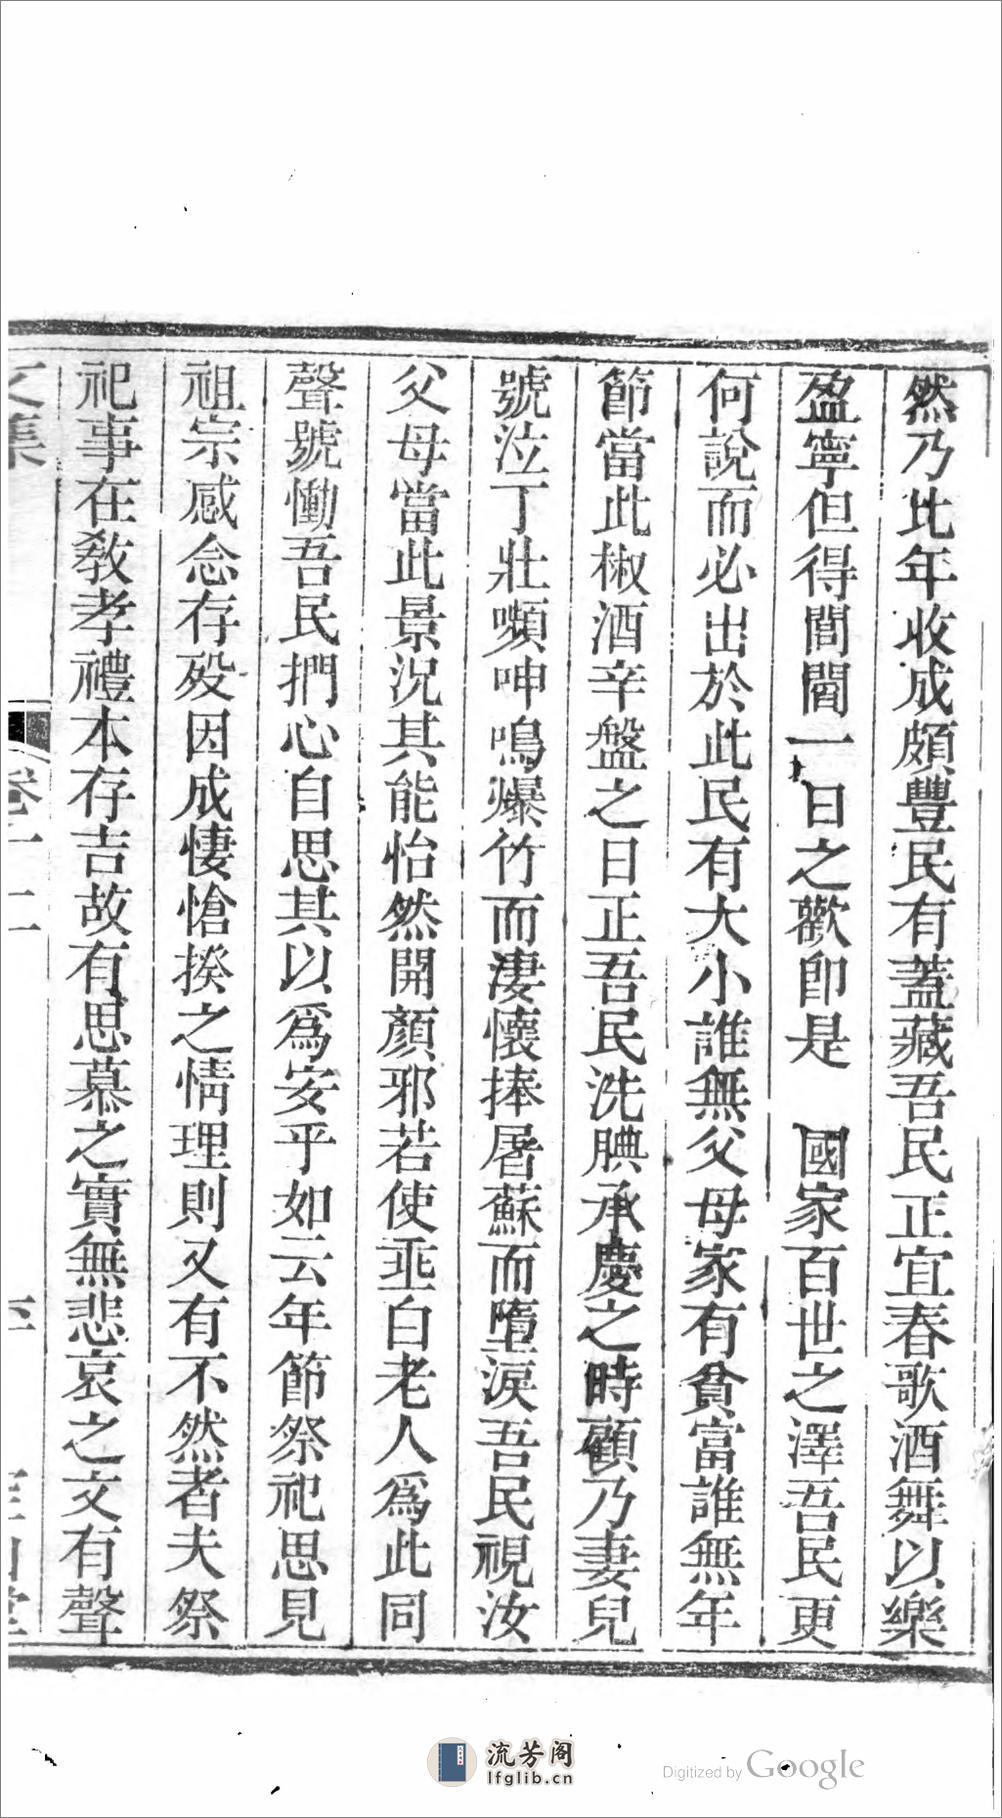 然乃比年收成頗豐民有蓋藏吾民正宜春歌酒舞以樂
盈寧但得閭閻一日之歡卽是　國家百世之澤吾民更
何說而必出於此民有大小誰無父母家有貧富誰無年
節當此椒酒辛盤之日正吾民洗腆承慶之時顧乃妻兒
號泣丁壯嚬呻鳴爆竹而淒懷捧屠蘇而墮淚吾民視汝
父母當此景況其能怡然開顏邪若使垂白老人爲此同
聲號慟吾民捫心自思其以爲安乎如云年節祭祀思見
祖宗感念存歿因成悽愴揆之情理則又有不然者夫祭
祀事在敎孝禮本存吉故有思慕之實無悲哀之文有聲
文集
卷十二
流芳阁
lfglib.cn
Digitized by Google